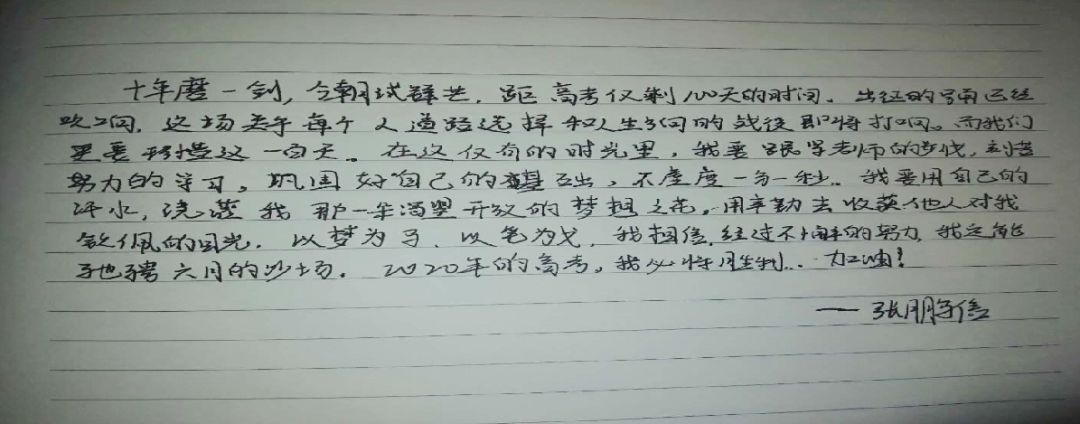 十年磨一剑,今朝试锋芒,距高考仅剩100天的时间。出征的号角已经
吹响,这场关乎每个人道路选择和人生方向的战役即将打响。而我们
更要珍惜这一百天。在这仅有的时光里,我要跟紧老师的步伐,刻苦
努力的学习,巩固好自己的基础,不虚度一分一秒。我要用自己的
汗水,浇灌我那一朵渴望开放的梦想之花。用辛勤去收获他人对我
钦佩的目光。以梦为马,以笔为戈,我相信,经过不懈的努力,我定能
驰骋六月的沙场。2020年的高考,我必将胜利... 加油!
—— 张朋